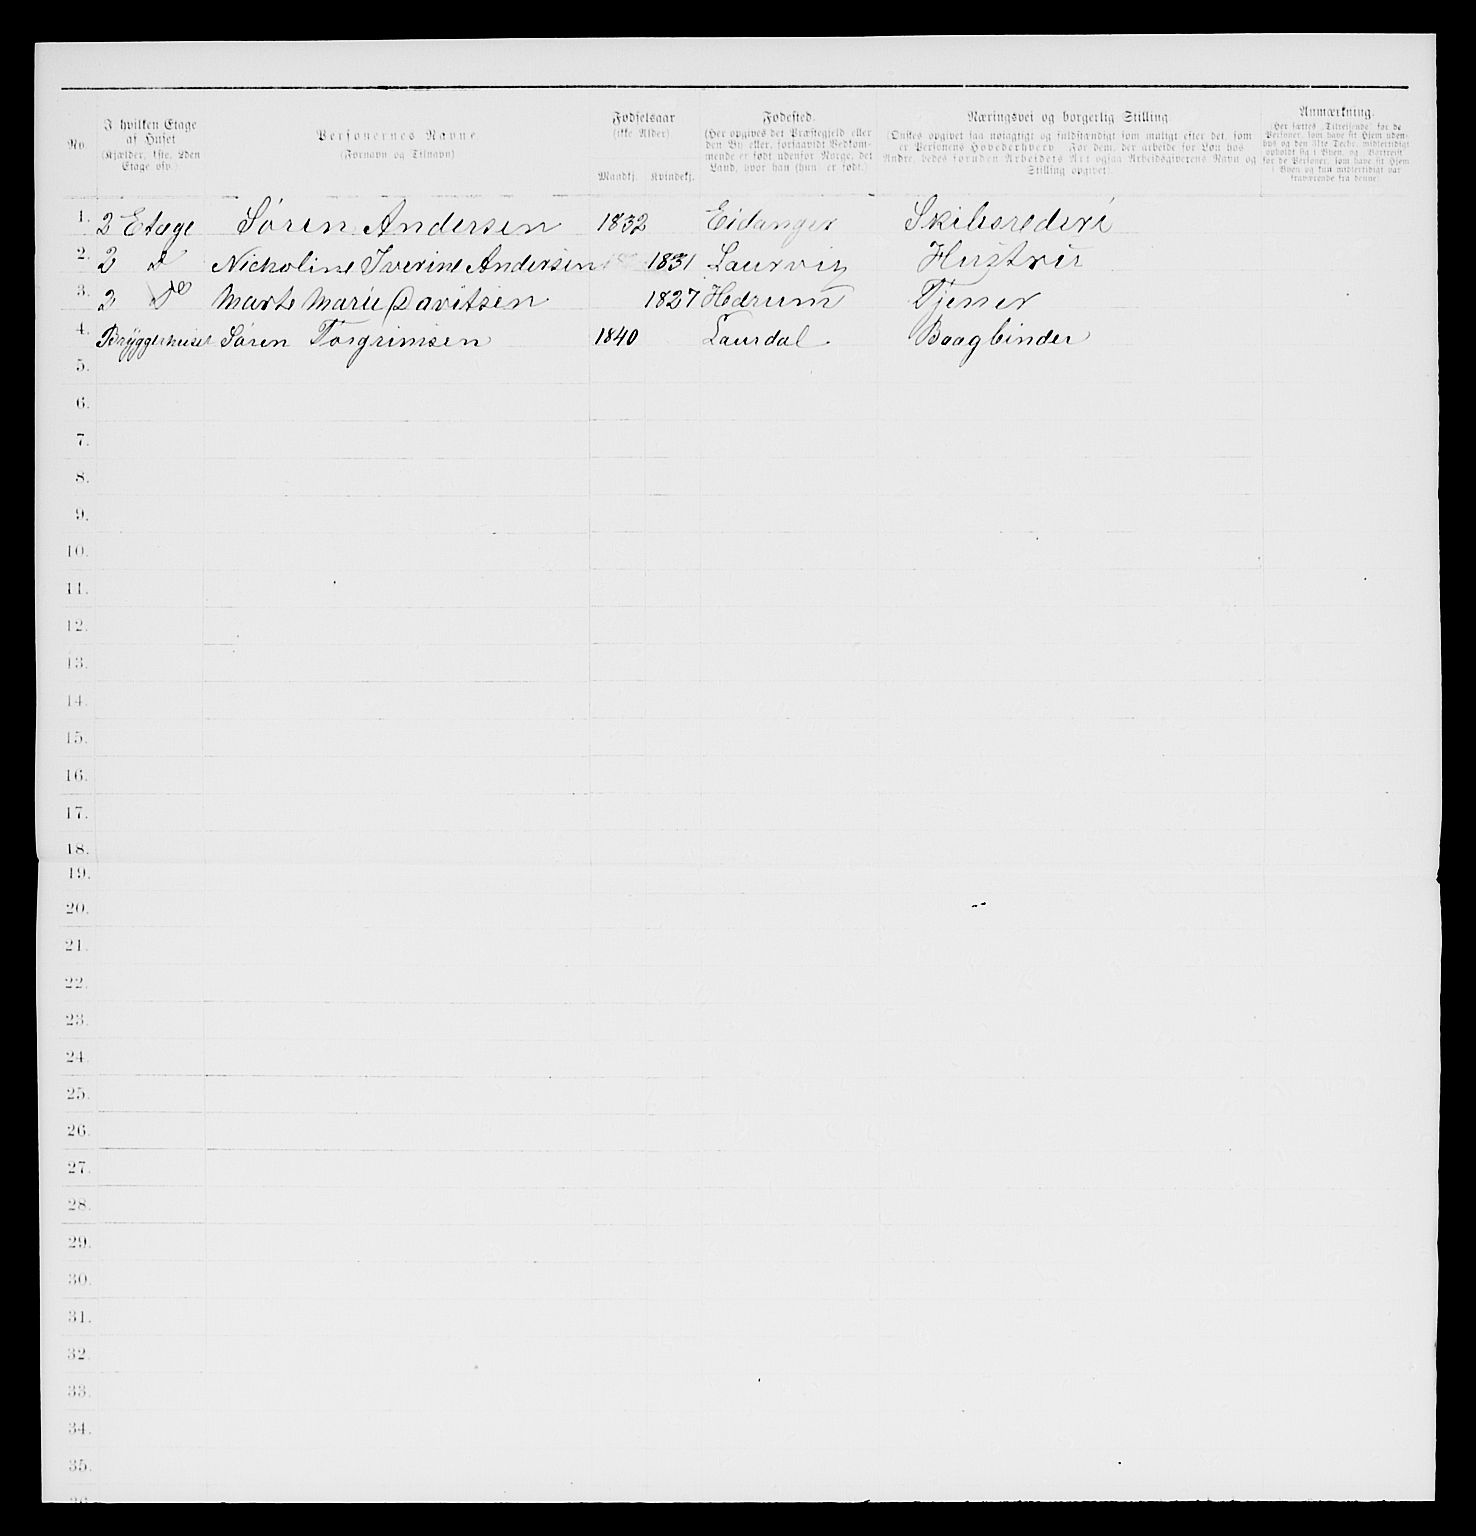 No.
I hvilken Etage af Huset (Kjælder, 1ste, 2den Etage osv.)
Personernes Navne (Fornavn og Tilnavn)
Fødselsaar (ikke Alder)
Mandkj. Kvindekj.
Fødested. (Her opgives det Præstegjeld eller den By eller, forsaavidt Vedkommende er født udenfor Norge, det Land, hvor han (hun) er født.)
Næringsvei og borgerlig Stilling. (Ønskes opgivet saa nøiagtigt og fuldstændigt som muligt efter det, som er Personens Hovederhverv. For dem, der arbeide for Løn hos Andre, bedes foruden Arbeidets Art ogsaa Arbeidsgiverens Navn og Stilling opgivet.)
Anmærkning. (Her sættes "Tilreisende" for de Personer, som have sit Hjem udenbys og den 31te Decbr. midlertidigt opholdt sig i Byen, og "Bortreist" for de Personer, som have sit Hjem i Byen og kun midlertidigt var fraværende fra denne.)
1. 2 Etage Søren Andersen 1832 Eidanger Skibsrederi
2. 2 d Nicholine Iverine Andersen 1831 Laurvig Hustru
3. 2 do Marte Marie Davitsen 1827 Hedrum Tjener
4. Bryggerhuset Søren Torgrimsen 1840 Laurdal Boagbinder
5.
6.
7.
8.
9.
10.
11.
12.
13.
14.
15.
16.
17.
18.
19.
20.
21.
22.
23.
24.
25.
26.
27.
28.
29.
30.
31.
32.
33.
34.
35.